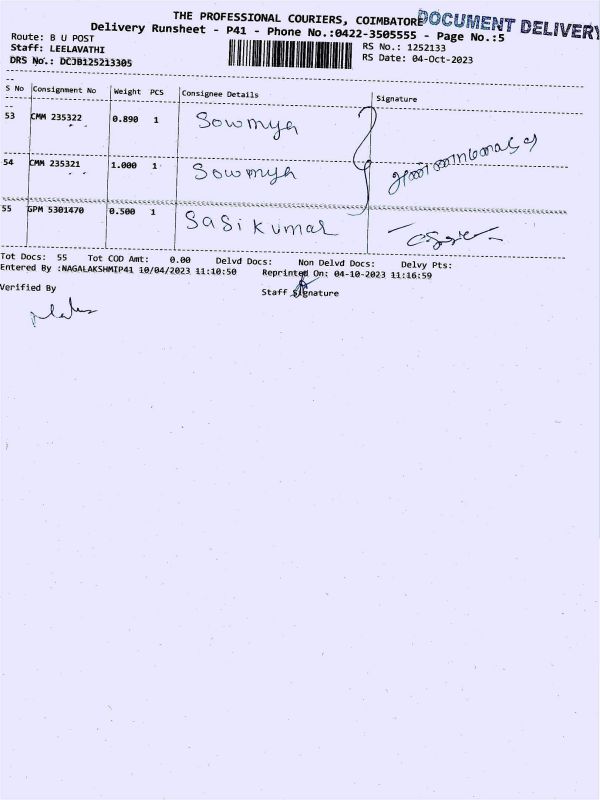 THE PROFESSIONAL COURIERS, COIMBATORE
DOCUMENT DELIVERY
Delivery Runsheet - P41 - Phone No.:0422-3505555 - Page No.:5
Route: B U POST
RS No.: 1252133
Staff: LEELAVATHI
RS Date: 04-Oct-2023
DRS No.: DCJB125213305
S No Consignment No Weight PCS Consignee Details Signature
53 CMM 235322 0.890 1 Sowmya
54 CMM 235321 1.000 1 Sowmya
55 GPM 5301470 0.500 1 Sasikumar
Tot Docs: 55 Tot COD Amt: 0.00 Delvd Docs: Non Delvd Docs: Delvy Pts:
Entered By :NAGALAKSHMIP41 10/04/2023 11:10:50 Reprinted On: 04-10-2023 11:16:59
Verified By
Staff Signature